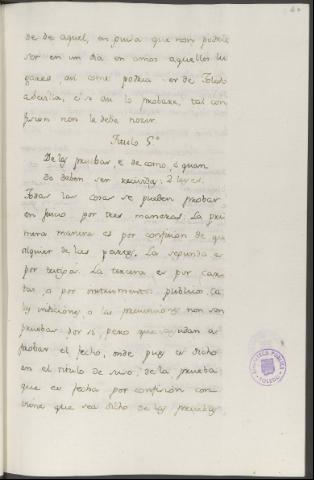 de de aquel, en guisa que non podria
ser en un dia en amos aquellos lu
gares, asi como podria ser de Toledo
a Sevilla, e si asi lo probare, tal con
fesion non le debe nozir.
Titulo 5.º
De las pruebas, e de como, o quan
do deben ser recividas: 2 leyes.
Todas las cosas se pueden probar
en juicio por tres maneras: La pri
mera manera es por confesion de qua
lquier de las partes. La segunda es
por testigos. La tercera es por car
tas, o por instrumentos publicos, ca
las indiciones, o las presunciones non son
pruebas por si, pero que ayudan a
probar el fecho, onde pues es dicho
en el titulo de suso, de la prueba
que es fecha por confesion con
viene que sea dicho de las pruebas
BIBLIOTECA PUBLICA
TOLEDO